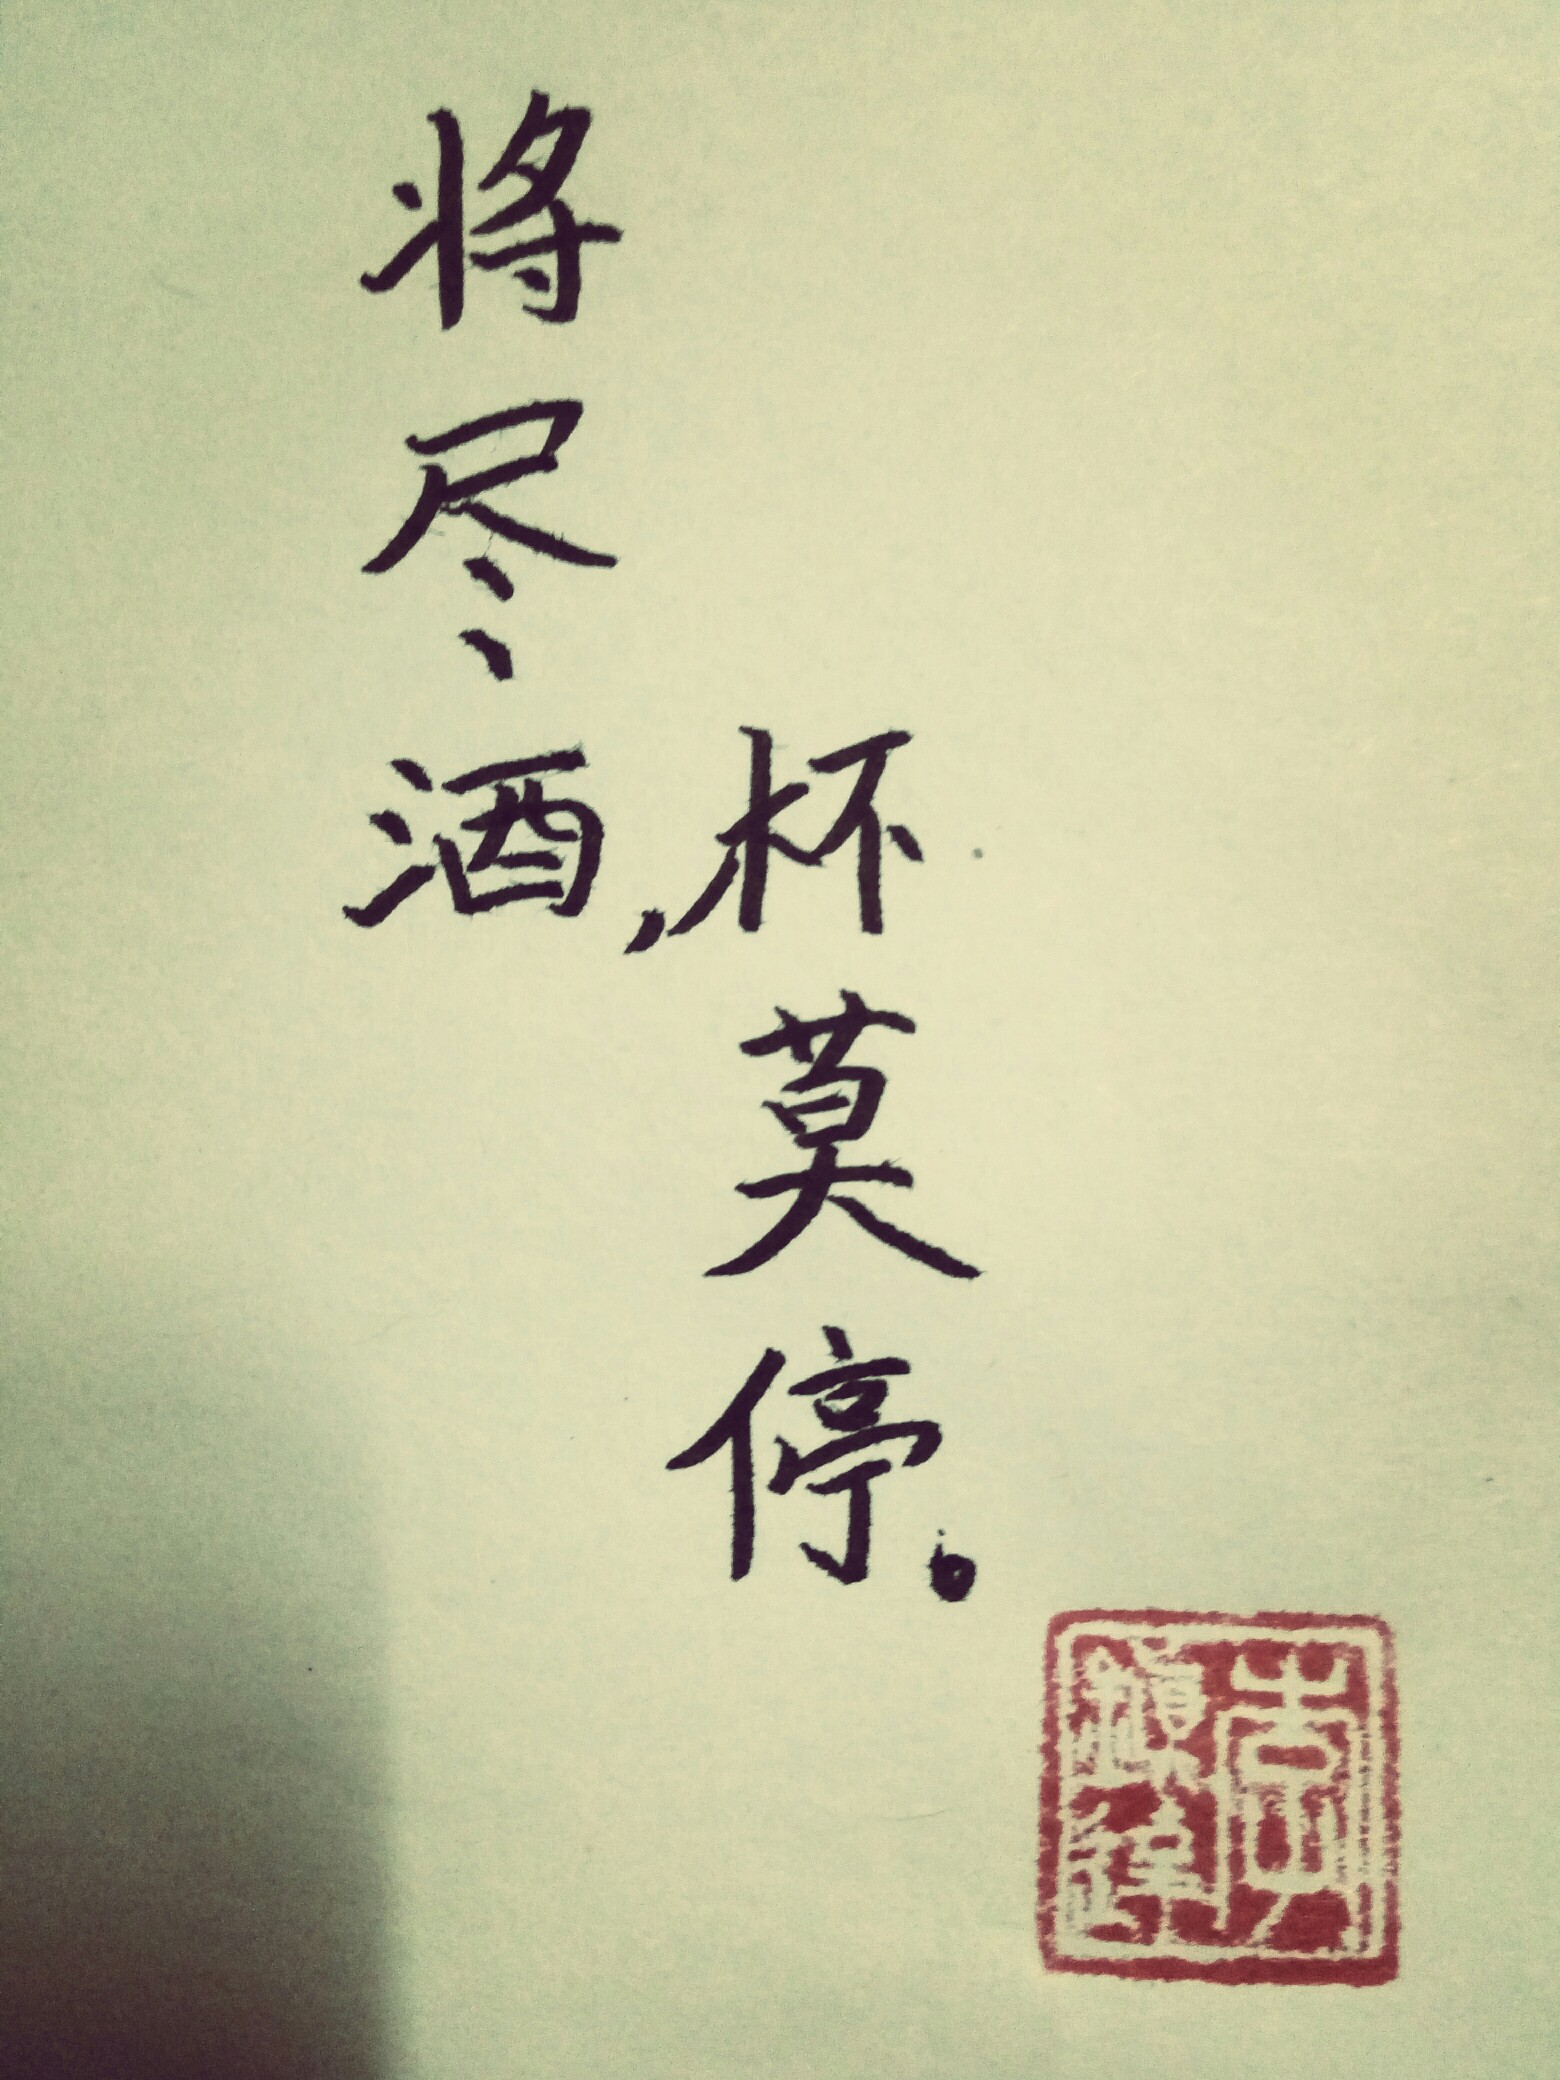 将尽酒,
杯莫停。